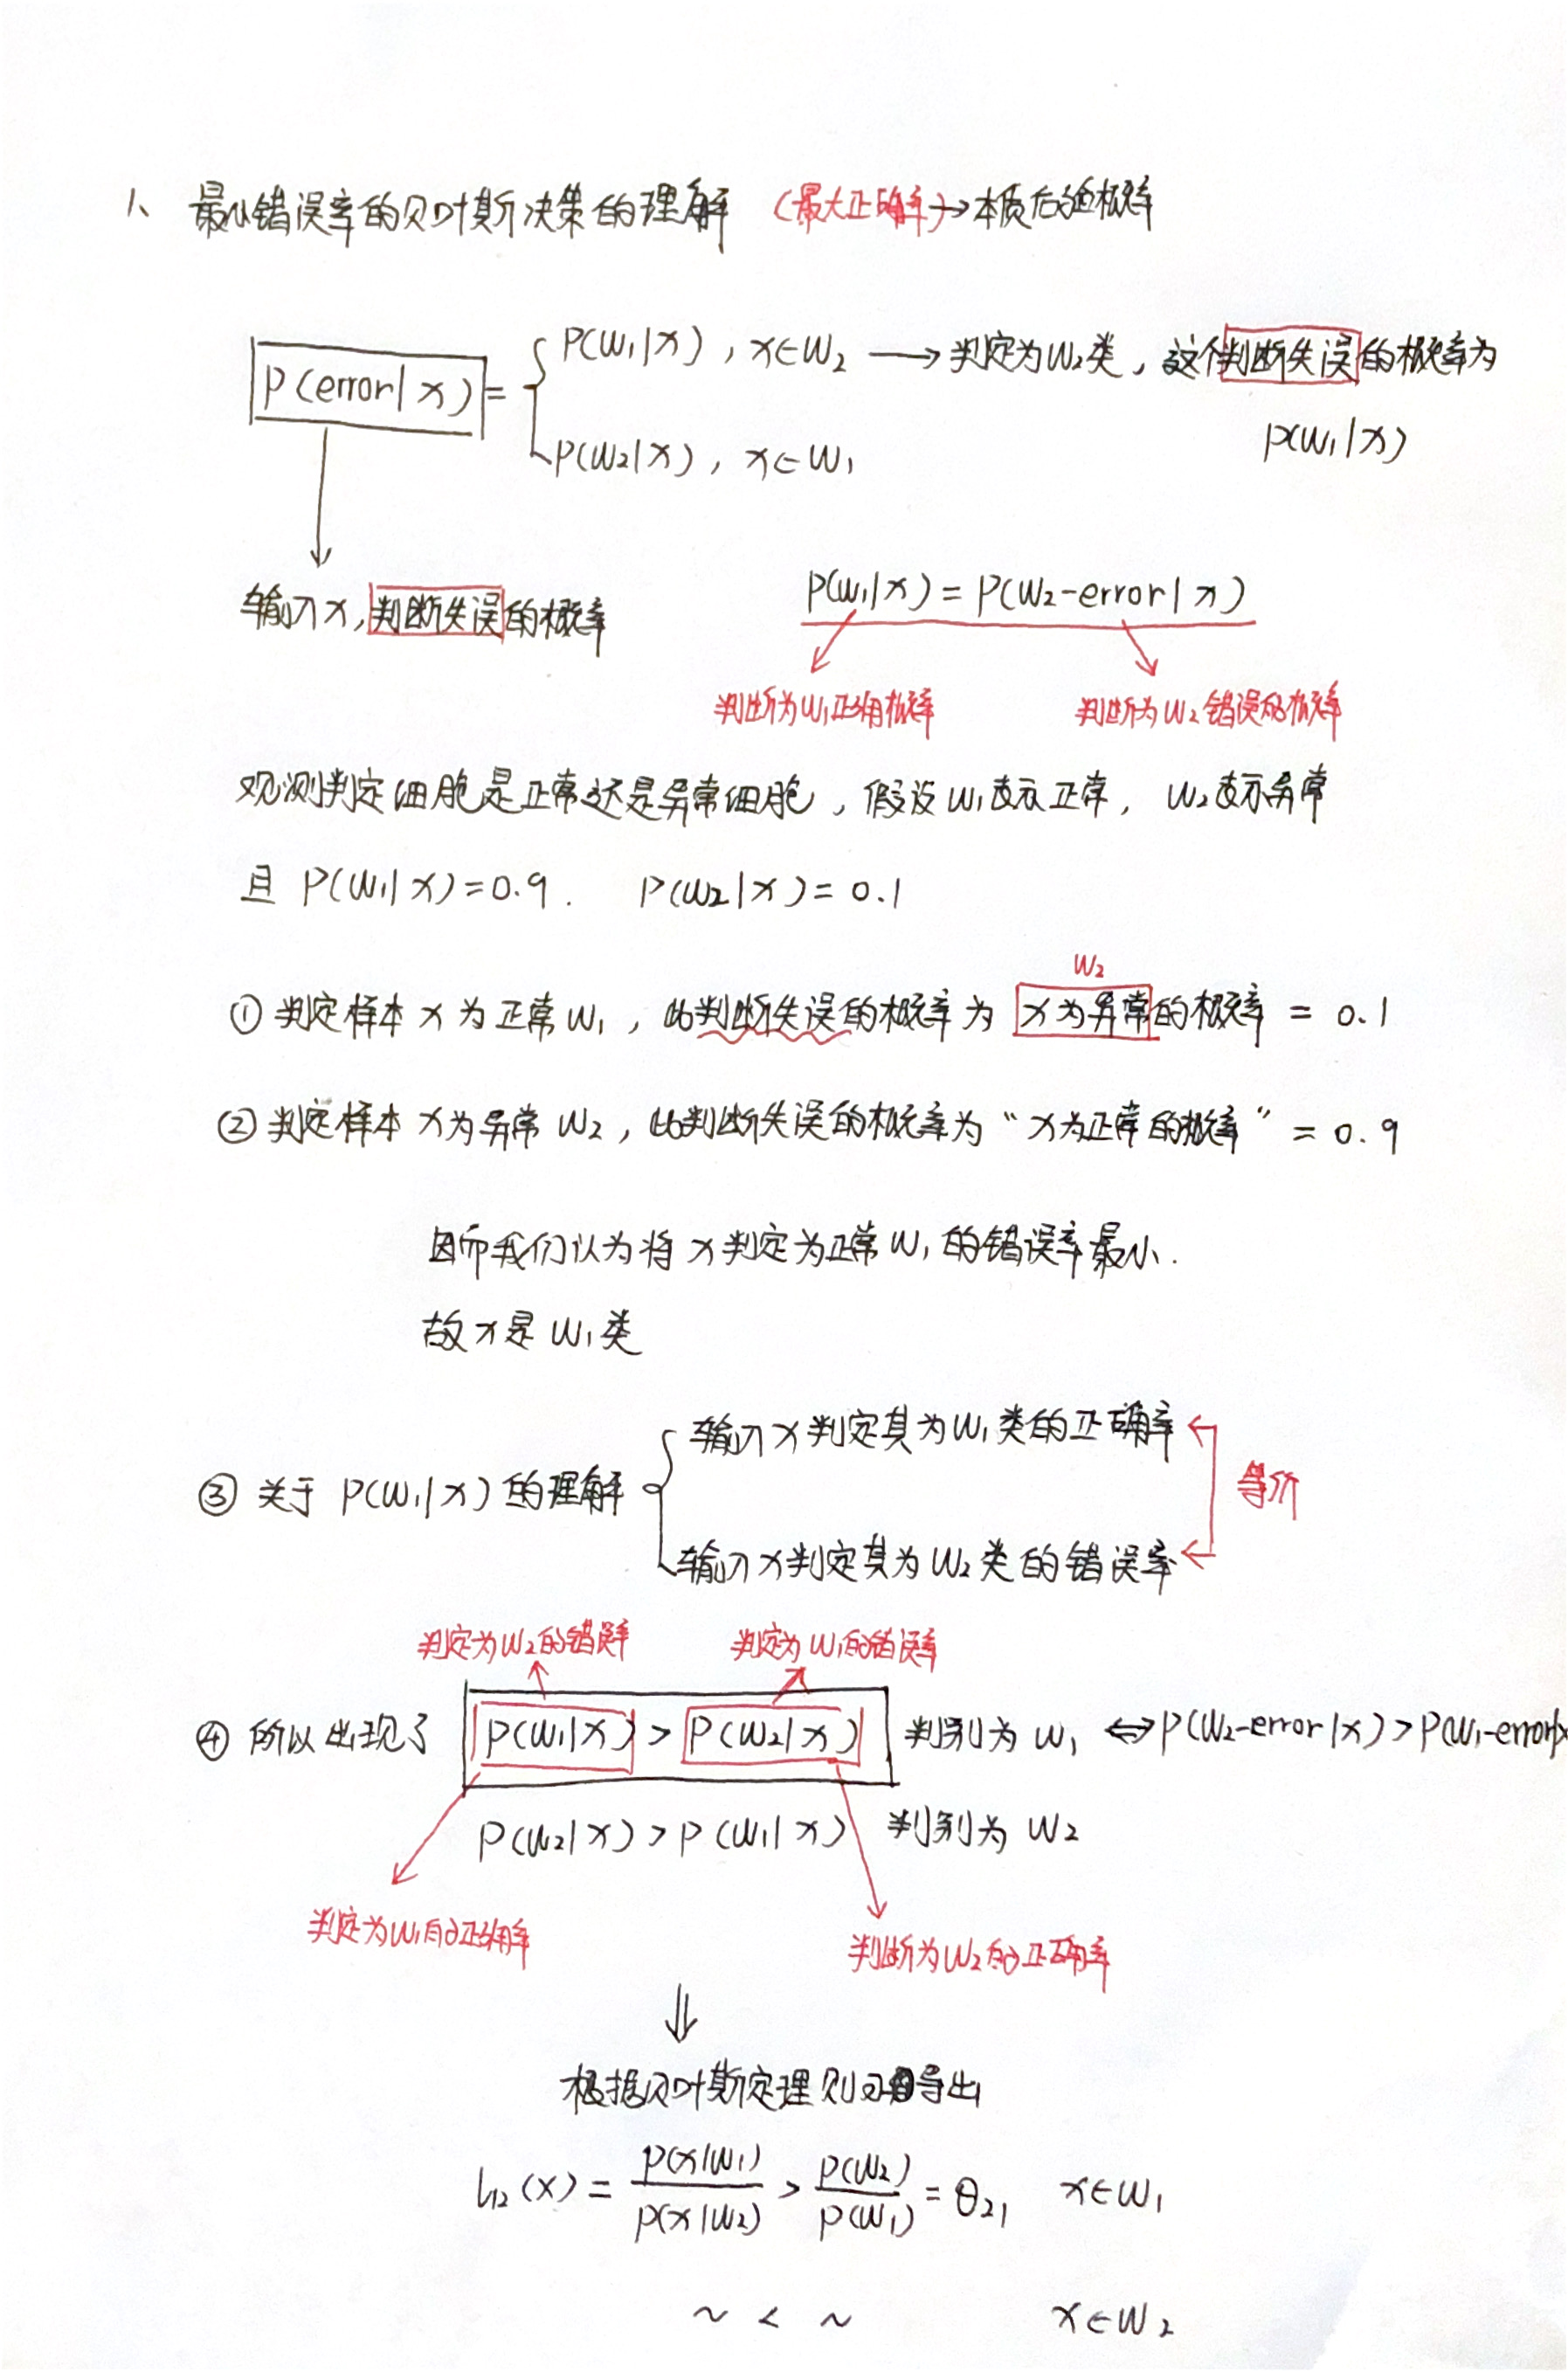 1、最小错误率的贝叶斯决策的理解 (最大正确率)→本质后验概率
P(error|x) = { P(W₁|x), x∈W₂ → 判定为W₂类, 这个判断失误的概率为
P(W₁|x)
P(W₂|x), x∈W₁
输入x, 判断失误的概率
P(W₁|x) = P(W₂-error|x)
判断为W₁正确概率 判断为W₂错误的概率
观测判定细胞是正常还是异常细胞, 假设W₁表示正常, W₂表示异常
且 P(W₁|x)=0.9. P(W₂|x)=0.1
W₂
① 判定样本x为正常W₁, 此判断失误的概率为 x为异常的概率 = 0.1
② 判定样本x为异常W₂, 此判断失误的概率为“x为正常的概率” = 0.9
因而我们认为将x判定为正常W₁的错误率最小.
故x是W₁类
输入x判定其为W₁类的正确率
③ 关于P(W₁|x)的理解 { 等价
输入x判定其为W₂类的错误率
判定为W₂的错误率 判定为W₁的错误率
④ 所以出现了 P(W₁|x) > P(W₂|x) 判别为W₁ ⇔ P(W₂-error|x) > P(W₁-error|x
P(W₂|x) > P(W₁|x) 判别为W₂
判定为W₁的正确率 判断为W₂的正确率
⇓
根据贝叶斯定理则可导出
l₁₂(x) = P(x|W₁)/P(x|W₂) > P(W₂)/P(W₁) = θ₂₁ x∈W₁
~ < ~ x∈W₂